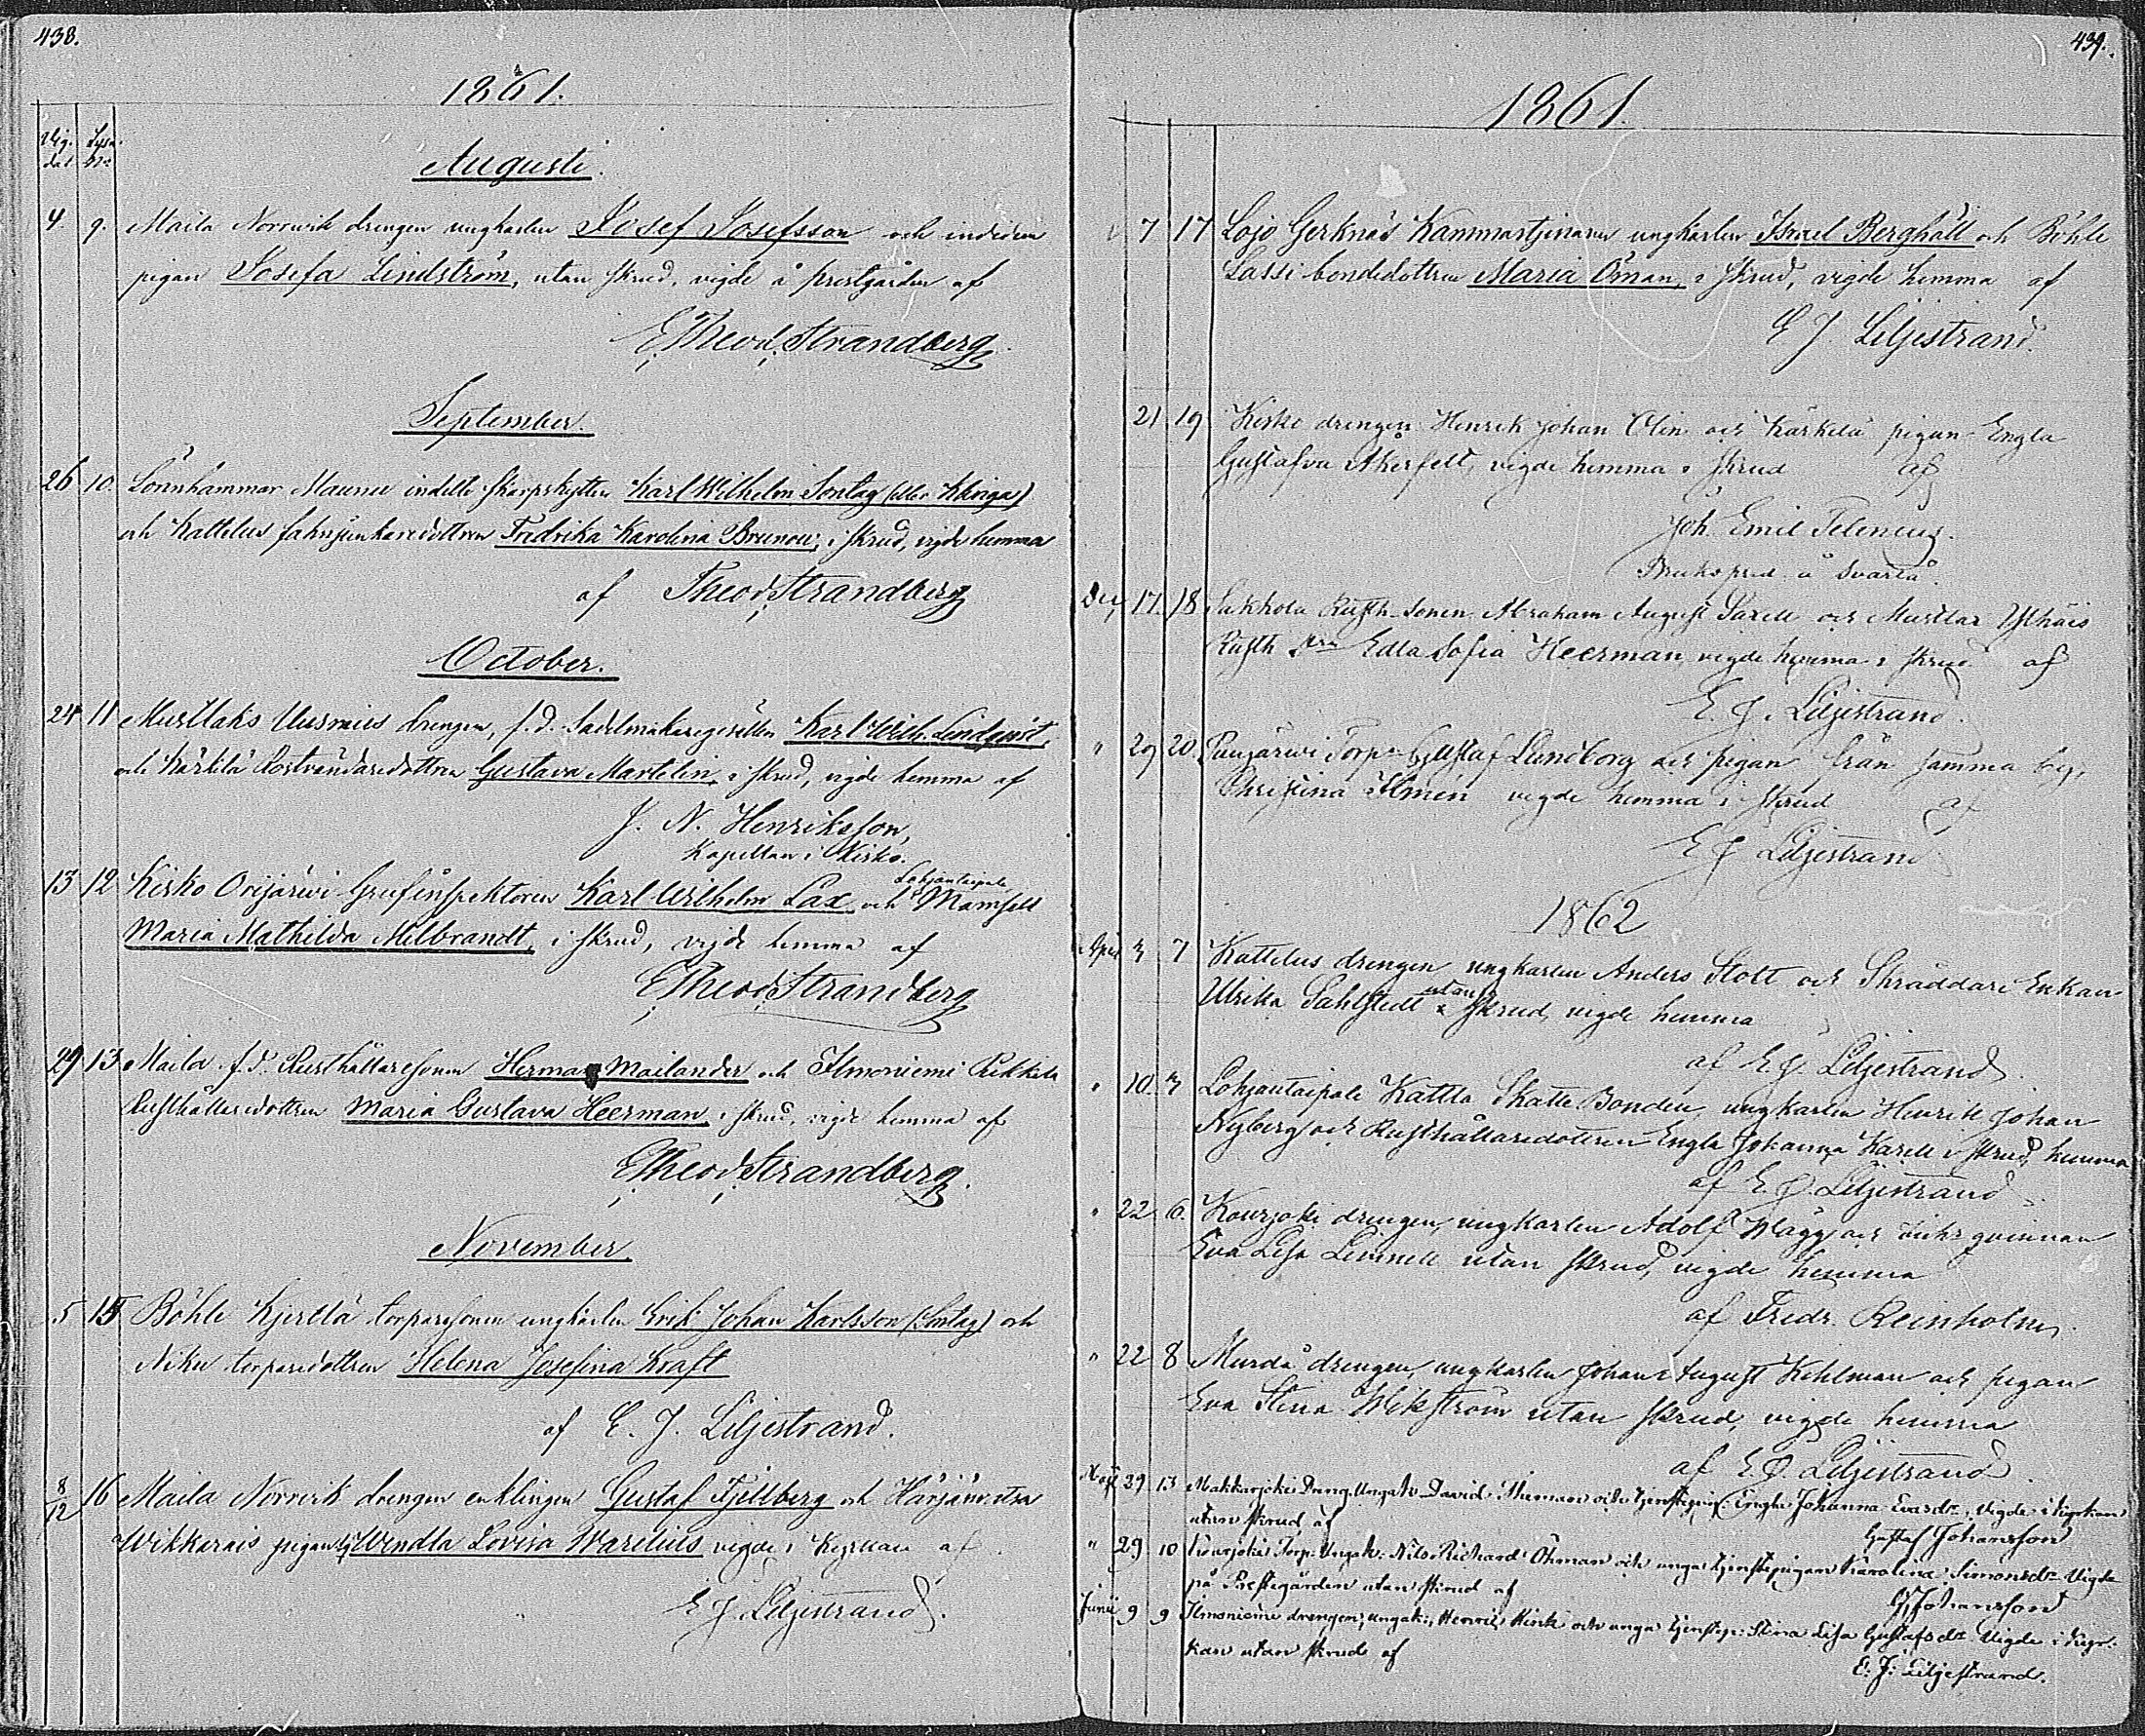 438.
1861.
Vig. Lysn.
dat. No
Augusti.
4. 9. Maila Norrvik drengen ungkarlen Josef Josefsson och inhises
pigan Josefa Lindström, utan skrud, vigde å prestgården af
E. Theod. Strandberg
September.
26 10. Lönnhammar Maunu indelte skarpskytten Karl Wilhelm Sontag (eller Kliriga)
och Kattelus fahnjunkaredottren Fredrika Karolina Brunow, i skrud, vigde hemma
af Theod. Strandberg
October.
24 11 Mustlaks Uusmies drengen, f.d. Sadelmakaregesällen Karl Wilh. Lindqvist,
och Kärkelä Rostvändaredottren Gustava Martelin, i skrud, vigde hemma af
J. N. Henriksson,
Kapellan i Kisko.
13 12 Kisko Orijärwi Grufinspektoren Karl Wilhelm Lax och Lohjantaipale Mamsell
Maria Mathilda Milbrandt, i skrud, vigde hemma af
E Theod. Strandberg
29 13 Maila f.d. Rusthållaresonen Herman Mailander och Ilmoniemi Pikkala
Rusthållaredottren Maria Gustava Heerman, i skrud, vigde hemma af
E Theod. Strandberg.
November
5 15 Böhle Kjerttä torparesonen ungkarlen Erik Johan Karlsson (Sontag) och
Niku torparedottren Helena Josefina Kraft
af E. J. Liljestrand.
8/12 16 Maila Norrvik drengen enklingen Gustaf Fjellberg och Härjänvatsa
Wikkarais pigan Wendla Lovisa Warelius vigde i Kyrkan af
E J Liljestrand.
439.
1861.
7 17 Lojo Gerknäs Kammartjenaren ungkarlen Israel Berghäll och Böhle
Lassi bondedottren Maria Öman, i skrud, vigde hemma af
E J. Liljestrand.
21 19 Kisko drengen Henrik Johan Olin och Kärkelä pigan Engla
Gustafva Åkerfelt, vigde hemma i skrud af
Joh. Emil Telenius.
Brukspred. å Svartå.
Dec. 17. 18 Sakkola Rusth. sonen Abraham August Saxell och Mustlax Ylhäis
Rusth drn Edla Sofia Heerman, vigde hemma i skrud af
E. J. Liljestrand.
" 29 20. Puujärwi Torp. Gustaf Lundborg och pigan från samma by,
Christina Ilmén vigde hemma i skrud af
E J Liljestrand
1862
April 3 7 Kattelus drengen ungkarlen Anders Stolt och Skräddare Enkan
Ulrika Sahlstedt utan skrud, vigde hemma
af E J. Liljestrand.
" 10. 3 Lohjantaipale Kattla Skatte Bonden, ungkarlen Henrik Johan
Nyberg och Rusthållaredottren Engla Johanna Karell i skrud, hemma
af E J. Liljestrand
" 22 6. Kourjoki drengen, ungkarlen Adolf Mägg och inhs qvinnan
Eva Lisa Limnell utan skrud, vigde hemma
af Fredr. Reinholm.
" 22 8 Murda drengen, ungkarlen Johan August Kihlman och pigan
Eva Stina Wikström utan skrud, vigde hemma
af E. J. Liljestrand
Maji 29 13 Makkarjoki Dreng. Ungk. David Thuman och tjenstepig. Engla Johanna Evasdr. Vigde i kyrkan
utan skrud af Gustaf Johansson
" 29 10 Kourjoki Torp: Ungk: Nils Richard Öhman och unga tjenstepigan Karolina Simonsdr. Vigde
på Prestegården utan skrud af G Johansson
Junii 9 9 Ilmoniemi drengen, ungk:, Henric Hirck och unga tjenstep: Stina Lisa Gustafsdr. Vigde i kyr-
kan utan skrud af
E: J: Liljestrand.